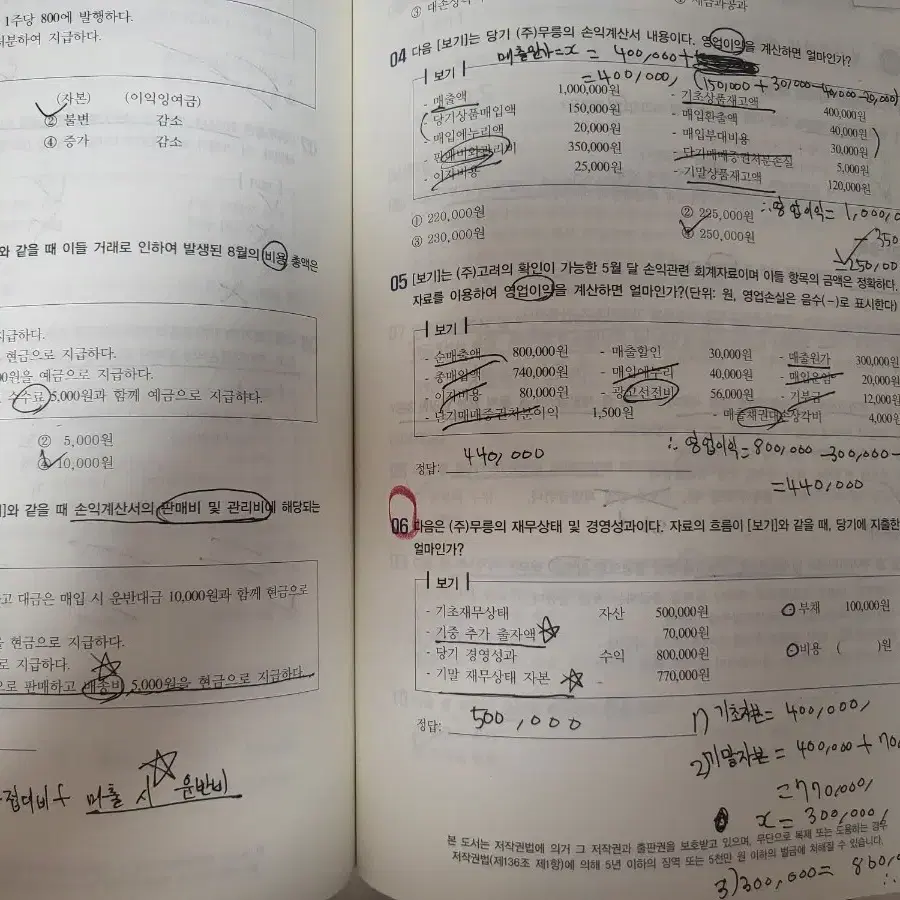 1주당 800에 발행하다.
하여 지급하다.
(자본) (이익잉여금)
② 불변 감소
④ 증가 감소
와 같을 때 이들 거래로 인하여 발생된 8월의 비용 총액은
지급하다.
현금으로 지급하다.
00원을 예금으로 지급하다.
수수료 5,000원과 함께 예금으로 지급하다.
② 5,000원
④ 10,000원
]와 같을 때 손익계산서의 판매비 및 관리비에 해당되는
고 대금은 매입 시 운반대금 10,000원과 함께 현금으로
현금으로 지급하다.
로 지급하다.
으로 판매하고 배송비 5,000원을 현금으로 지급하다.
접대비 + 매출 시 운반비
04 다음 [보기]는 당기 (주)무릉의 손익계산서 내용이다. 영업이익을 계산하면 얼마인가?
매출원가 = x = 400,000 +
= 400,000, (150,000 + 30,000 - 40,000 - 20,000)
보기
- 매출액 1,000,000원 - 기초상품재고액 400,000원
- 당기상품매입액 150,000원 - 매입환출액 40,000원
- 매입에누리액 20,000원 - 매입부대비용 30,000원
- 판매비와관리비 350,000원 - 단기매매증권처분손실 5,000원
- 이자비용 25,000원 - 기말상품재고액 120,000원
① 220,000원 ② 225,000원
③ 230,000원 ④ 250,000원
∴ 영업이익 = 1,000,0
- 350
= 250,00
05 [보기]는 (주)고려의 확인이 가능한 5월 달 손익관련 회계자료이며 이들 항목의 금액은 정확하다.
자료를 이용하여 영업이익을 계산하면 얼마인가?(단위: 원, 영업손실은 음수(-)로 표시한다)
보기
- 순매출액 800,000원 - 매출할인 30,000원 - 매출원가 300,000원
- 총매입액 740,000원 - 매입에누리 40,000원 - 매입운임 20,000원
- 이자비용 80,000원 - 광고선전비 56,000원 - 기부금 12,000원
- 단기매매증권처분이익 1,500원 - 매출채권대손상각비 4,000원
정답: 440,000
∴ 영업이익 = 800,000 - 300,000 -
= 440,000
06 다음은 (주)무릉의 재무상태 및 경영성과이다. 자료의 흐름이 [보기]와 같을 때, 당기에 지출한
얼마인가?
보기
- 기초재무상태 자산 500,000원 부채 100,000원
- 기중 추가 출자액 70,000원
- 당기 경영성과 수익 800,000원 비용 ( )원
- 기말 재무상태 자본 770,000원
정답: 500,000
1) 기초자본 = 400,000,
2) 기말자본 = 400,000 + 70
= 770,000,
x = 300,000,
3) 300,000 = 800,0
본 도서는 저작권법에 의거 그 저작권과 출판권을 보호받고 있으며, 무단으로 복제 또는 도용하는 경우
저작권법(제136조 제1항)에 의해 5년 이하의 징역 또는 5천만 원 이하의 벌금에 처해질 수 있습니다.